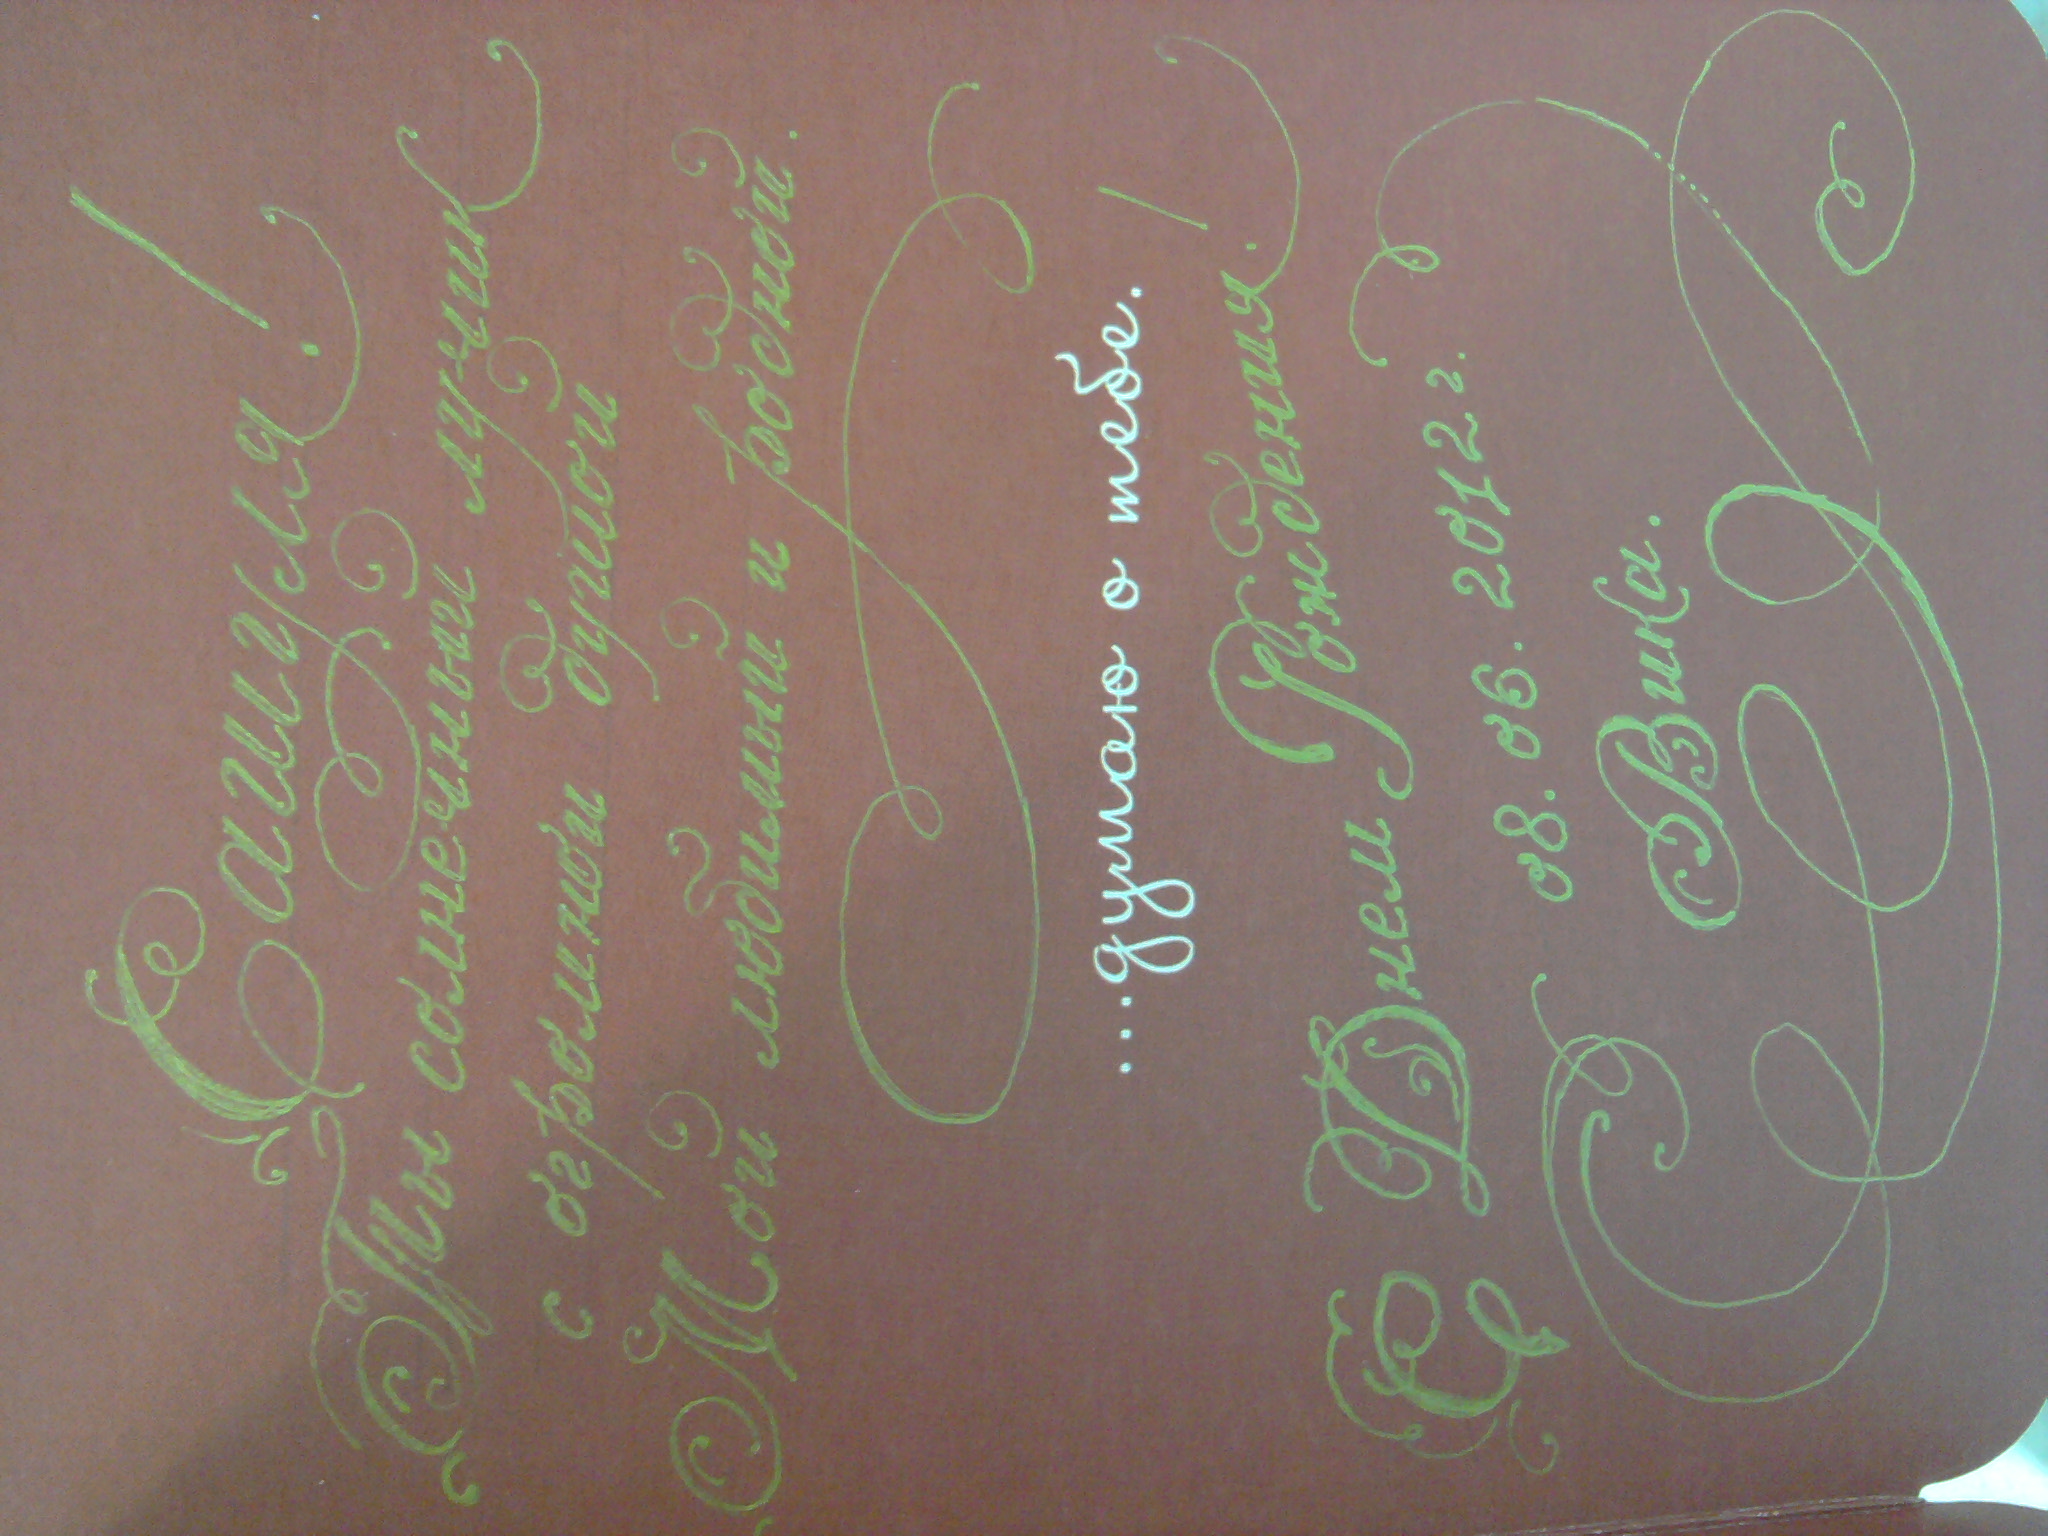 Сашуля!
Ты солнечный лучик
с огромной душой
Мой любимый и родной.
...думаю о тебе.
С Днем Рождения!
08.06.2012г.
Вика.